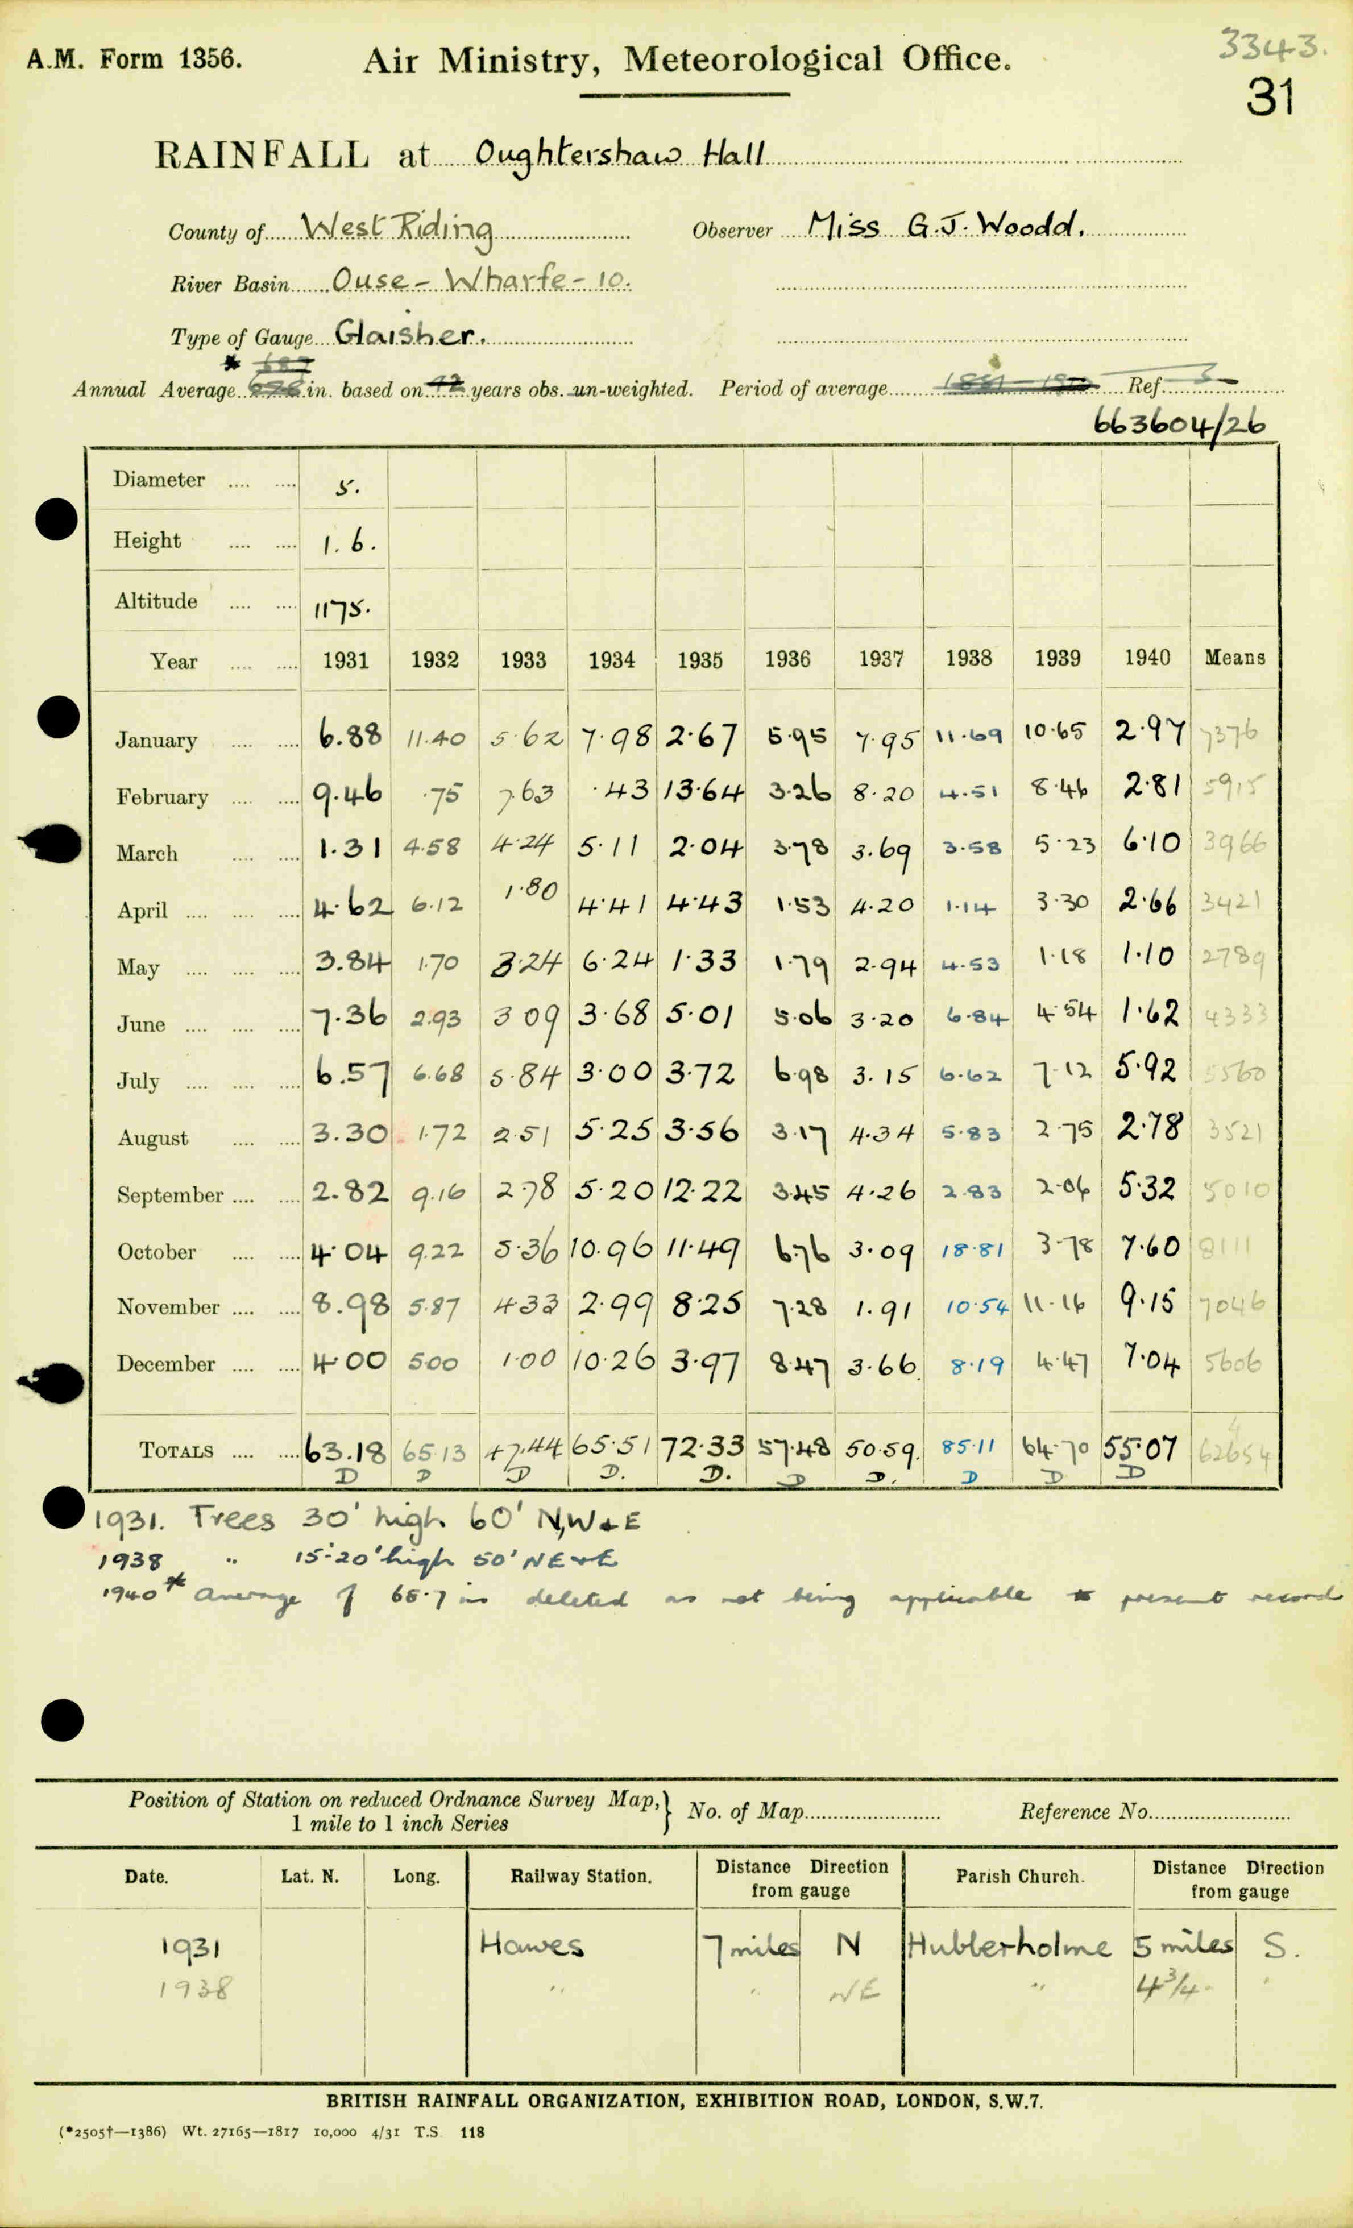 3343.
A.M. Form 1356. Air Ministry, Meteorological Office.
31
RAINFALL at Oughtershaw Hall
County of West Riding Observer Miss G.J. Woodd.
River Basin Ouse - Wharfe - 10.
Type of Gauge Glaisher.
Annual Average in. based on years obs. un-weighted. Period of average Ref.
663604/26
Diameter 5.
Height 1.6.
Altitude 1175.
Year 1931 1932 1933 1934 1935 1936 1937 1938 1939 1940 Means
January 6.88 11.40 5.62 7.98 2.67 5.95 7.95 11.69 10.65 2.97 7376
February 9.46 .75 7.63 .43 13.64 3.26 8.20 4.51 8.46 2.81 5915
March 1.31 4.58 4.24 5.11 2.04 3.78 3.69 3.58 5.23 6.10 3966
April 4.62 6.12 1.80 4.41 4.43 1.53 4.20 1.14 3.30 2.66 3421
May 3.84 1.70 3.24 6.24 1.33 1.79 2.94 4.53 1.18 1.10 2789
June 7.36 2.93 3 09 3.68 5.01 5.06 3.20 6.84 4.54 1.62 4333
July 6.57 6.68 5.84 3.00 3.72 6.98 3.15 6.62 7.12 5.92 5560
August 3.30 1.72 2.51 5.25 3.56 3.17 4.34 5.83 2.75 2.78 3521
September 2.82 9.16 2.78 5.20 12.22 3.45 4.26 2.83 2.06 5.32 5010
October 4.04 9.22 5.36 10.96 11.49 6.76 3.09 18.81 3.78 7.60 8111
November 8.98 5.87 4.33 2.99 8.25 7.28 1.91 10.54 11.16 9.15 7046
December 4.00 5.00 1.00 10.26 3.97 8.47 3.66 8.19 4.47 7.04 5606
TOTALS 63.18 65.13 47.44 65.51 72.33 57.48 50.59 85.11 64.70 55.07 62654
D D D D. D. D D. D D D
1931. Trees 30' high 60' N,W & E
1938 " 15'-20' high 50' NE & E
1940 * Average of 68.7 in deleted as not being applicable to present record
Position of Station on reduced Ordnance Survey Map, 1 mile to 1 inch Series } No. of Map Reference No.
Date. Lat. N. Long. Railway Station. Distance Direction from gauge Parish Church. Distance Direction from gauge
1931 Hawes 7 miles N Hubberholme 5 miles S.
1938 " " NE " 4 3/4 "
BRITISH RAINFALL ORGANIZATION, EXHIBITION ROAD, LONDON, S.W.7.
(*2505†—1386) Wt. 27165—1817 10,000 4/31 T.S. 118